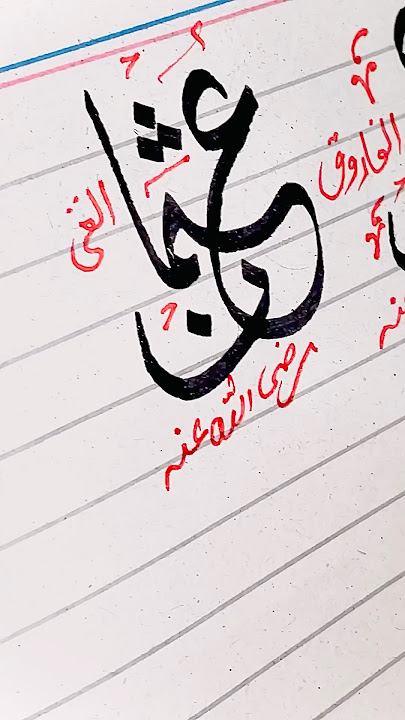 الفاروق
عثمان
الغنی
رضی اللہ عنہ